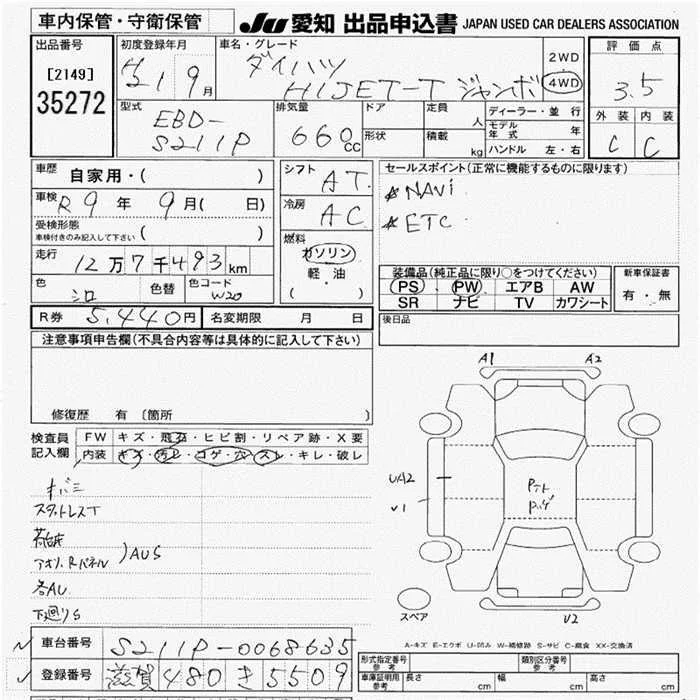 車内保管・守衛保管
JU 愛知 出品申込書 JAPAN USED CAR DEALERS ASSOCIATION
出品番号
[2149]
35272
初度登録年月
H21 9月
車名・グレード
ダイハツ
HIJET-T ジャンボ
2WD
4WD
評価点
3.5
外装 内装
C C
型式
EBD-
S211P
排気量
660cc
ドア
形状
定員 人
積載 kg
ディーラー・並行
モデル年式 年
ハンドル 左・右
車歴
自家用・( )
車検 R9年 9月( 日)
受検形態
車検付きのみ記入して下さい ( )
走行
12万7千493km
色 シロ 色替 色コード W20
シフト AT
冷房 AC
燃料
ガソリン
軽・油
( )
セールスポイント(正常に機能するものに限ります)
☆NAVi
☆ETC
装備品(純正品に限り○をつけてください)
PS PW エアB AW
SR ナビ TV カワシート
新車保証書
有・無
R券 5,440円 名変期限 月 日
後日品
注意事項申告欄(不具合内容等は具体的に記入して下さい)
修復歴 有 〔箇所 〕
検査員記入欄
FW キズ・飛石・ヒビ割・リペア跡・X要
内装 キズ・汚レ・コゲ・穴・スレ・キレ・破レ
スタットレスT
荷台底
アオリ、Rパネル )AUS
各AU
下廻りS
A1 A2
UA2
U1
U2
スペア
A-キズ E-エクボ U-凹み W-補修跡 S-サビ C-腐食 XX-交換済
車台番号 S211P-0068635
登録番号 滋賀 480 き 5509
形式指定番号 参考
類別区分番号 参考
車庫証明用 参考 長さ cm 幅 cm 高さ cm